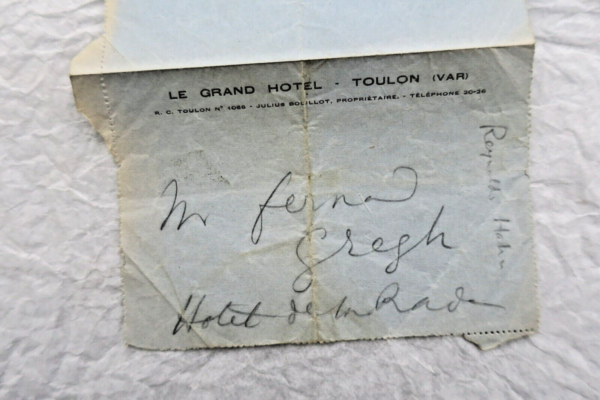 LE GRAND HOTEL - TOULON (VAR)
R. C. TOULON N° 1066 - JULIUS BOUILLOT, PROPRIÉTAIRE. - TÉLÉPHONE 20-36
M fernand
Gregh
Hotel de la Rade
Reynaldo Hahn